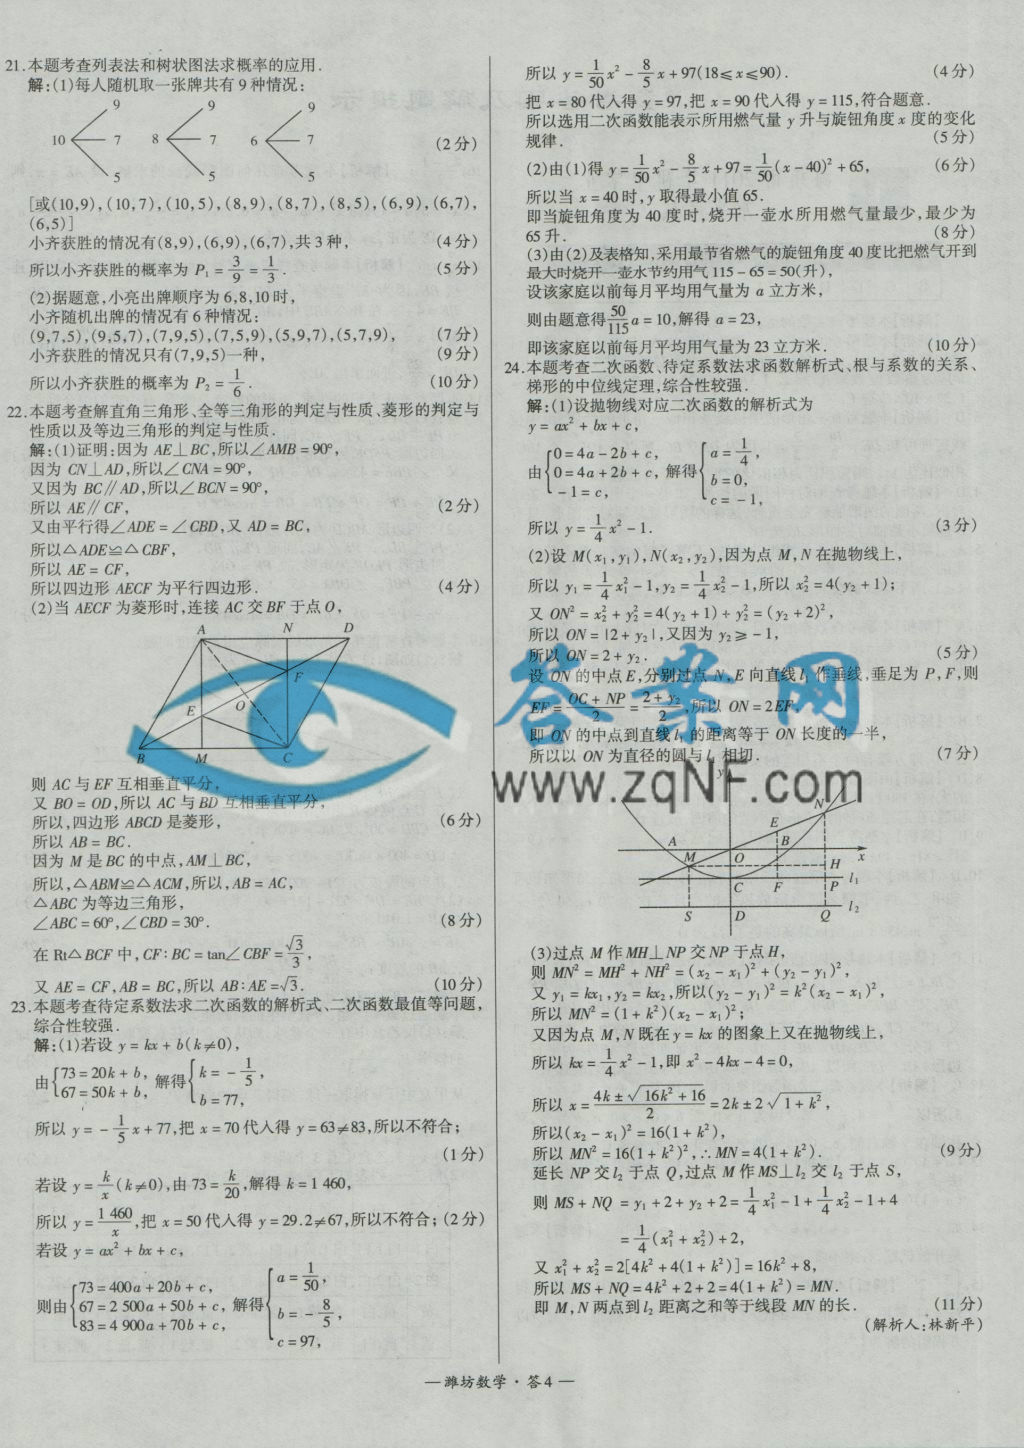 21.本题考查列表法和树状图法求概率的应用.
解:(1)每人随机取一张牌共有9种情况:
9 9 9
10 7 8 7 6 7 (2分)
5 5 5
[或(10,9),(10,7),(10,5),(8,9),(8,7),(8,5),(6,9),(6,7),
(6,5)]
小齐获胜的情况有(8,9),(6,9),(6,7),共3种, (4分)
所以小齐获胜的概率为 P₁ = 3/9 = 1/3. (5分)
(2)据题意,小亮出牌顺序为6,8,10时,
小齐随机出牌的情况有6种情况:
(9,7,5),(9,5,7),(7,9,5),(7,5,9),(5,9,7),(5,7,9), (7分)
小齐获胜的情况只有(7,9,5)一种, (9分)
所以小齐获胜的概率为 P₂ = 1/6. (10分)
22.本题考查解直角三角形、全等三角形的判定与性质、菱形的判定与
性质以及等边三角形的判定与性质.
解:(1)证明:因为 AE⊥BC,所以∠AMB=90°,
因为 CN⊥AD,所以∠CNA=90°,
又因为 BC∥AD,所以∠BCN=90°,
所以 AE∥CF, (2分)
又由平行得∠ADE=∠CBD,又 AD=BC,
所以△ADE≌△CBF,
所以 AE=CF,
所以四边形 AECF 为平行四边形. (4分)
(2)当 AECF 为菱形时,连接 AC 交 BF 于点 O,
A N D
F
E O
B M C
则 AC 与 EF 互相垂直平分,
又 BO=OD,所以 AC 与 BD 互相垂直平分,
所以,四边形 ABCD 是菱形, (6分)
所以 AB=BC.
因为 M 是 BC 的中点,AM⊥BC,
所以,△ABM≌△ACM,所以,AB=AC,
△ABC 为等边三角形,
∠ABC=60°,∠CBD=30°. (8分)
在 Rt△BCF 中,CF:BC=tan∠CBF=√3/3,
又 AE=CF,AB=BC,所以 AB:AE=√3. (10分)
23.本题考查待定系数法求二次函数的解析式、二次函数最值等问题,
综合性较强.
解:(1)若设 y=kx+b(k≠0),
由{73=20k+b, 67=50k+b, 解得{k=-1/5, b=77,
所以 y=-1/5x+77,把 x=70代入得 y=63≠83,所以不符合;
(1分)
若设 y=k/x(k≠0),由73=k/20,解得 k=1 460,
所以 y=1 460/x,把 x=50代入得 y=29.2≠67,所以不符合;(2分)
若设 y=ax²+bx+c,
则由{73=400a+20b+c, 67=2 500a+50b+c, 83=4 900a+70b+c, 解得{a=1/50, b=-8/5, c=97,
所以 y=1/50x²-8/5x+97(18≤x≤90). (4分)
把 x=80代入得 y=97,把 x=90代入得 y=115,符合题意.
所以选用二次函数能表示所用燃气量 y 升与旋钮角度 x 度的变化
规律. (5分)
(2)由(1)得 y=1/50x²-8/5x+97=1/50(x-40)²+65, (6分)
所以当 x=40时,y 取得最小值65.
即当旋钮角度为40度时,烧开一壶水所用燃气量最少,最少为
65升. (8分)
(3)由(2)及表格知,采用最节省燃气的旋钮角度40度比把燃气开到
最大时烧开一壶水节约用气115-65=50(升),
设该家庭以前每月平均用气量为 a 立方米,
则由题意得50/115a=10,解得 a=23,
即该家庭以前每月平均用气量为23立方米. (10分)
24.本题考查二次函数、待定系数法求函数解析式、根与系数的关系、
梯形的中位线定理,综合性较强.
解:(1)设抛物线对应二次函数的解析式为
y=ax²+bx+c,
由{0=4a-2b+c, 0=4a+2b+c, -1=c, 解得{a=1/4, b=0, c=-1,
所以 y=1/4x²-1. (3分)
(2)设 M(x₁,y₁),N(x₂,y₂),因为点 M,N 在抛物线上,
所以 y₁=1/4x₁²-1,y₂=1/4x₂²-1,所以 x₂²=4(y₂+1);
又 ON²=x₂²+y₂²=4(y₂+1)+y₂²=(y₂+2)²,
所以 ON=|2+y₂|,又因为 y₂≥-1,
所以 ON=2+y₂. (5分)
设 ON 的中点 E,分别过点 N,E 向直线 l₁ 作垂线,垂足为 P,F,则
EF=(OC+NP)/2=(2+y₂)/2,所以 ON=2EF,
即 ON 的中点到直线 l₁ 的距离等于 ON 长度的一半,
所以以 ON 为直径的圆与 l₁ 相切. (7分)
y
N
E
A B
M O H x
C F P l₁
S D Q l₂
(3)过点 M 作 MH⊥NP 交 NP 于点 H,
则 MN²=MH²+NH²=(x₂-x₁)²+(y₂-y₁)²,
又 y₁=kx₁,y₂=kx₂,所以(y₂-y₁)²=k²(x₂-x₁)²,
所以 MN²=(1+k²)(x₂-x₁)²;
又因为点 M,N 既在 y=kx 的图象上又在抛物线上,
所以 kx=1/4x²-1,即 x²-4kx-4=0,
所以 x=(4k±√(16k²+16))/2=2k±2√(1+k²),
所以(x₂-x₁)²=16(1+k²),
所以 MN²=16(1+k²)²,∴MN=4(1+k²). (9分)
延长 NP 交 l₂ 于点 Q,过点 M 作 MS⊥l₂ 交 l₂ 于点 S,
则 MS+NQ=y₁+2+y₂+2=1/4x₁²-1+1/4x₂²-1+4
=1/4(x₁²+x₂²)+2,
又 x₁²+x₂²=2[4k²+4(1+k²)]=16k²+8,
所以 MS+NQ=4k²+2+2=4(1+k²)=MN.
即 M,N 两点到 l₂ 距离之和等于线段 MN 的长. (11分)
(解析人:林新平)
—潍坊数学·答4—
答案网
www.zqNF.com